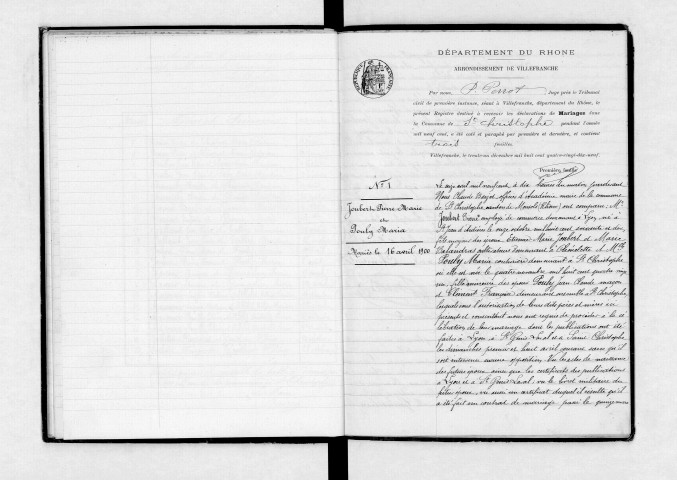 DÉPARTEMENT DU RHONE
ARRONDISSEMENT DE VILLEFRANCHE
Par nous, P. Perrot Juge près le Tribunal
civil de première instance, séant à Villefranche, département du Rhône, le
présent Registre destiné à recevoir les déclarations de Mariages dans
la Commune de St Christophe pendant l'année
mil neuf cent, a été coté et paraphé par première et dernière, et contient
trois feuilles.
Villefranche, le trente-un décembre mil huit cent quatre-vingt-dix-neuf.
Première feuille
No 1
Joubert Pierre Marie
et
Pouly Maria
Mariés le 16 avril 1900
Le seize avril mil neuf cent, à dix heures du matin, pardevant
Nous Claude officier d'Académie maire de la commune
de St Christophe canton de Monsols (Rhône) ont comparu Mr
Joubert employé de commerce demeurant à Lyon, né à
St Jean d' le onze octobre mil huit cent soixante et dix,
fils majeur des époux Etienne Marie Joubert et Marie
cultivateurs demeurant à et Melle
Pouly Maria couturière demeurant à St Christophe
où elle est née le quatre novembre mil huit cent quatre vingt
un, fille mineure des époux Pouly Jean Claude maçon
et Clément Françoise demeurant ensemble à St Christophe,
lesquels sous l'autorisation de leurs dits pères et mères ici
présents et consentant nous ont requis de procéder à la cé
lébration de leur mariage dont les publications ont été
faites à Lyon à St Genis Laval et à Saint Christophe
les dimanches premier et huit avril courant sans qu'il
soit intervenu aucune opposition. Vu les actes de naissance
des futurs époux ainsi que les certificats des publications
à Lyon et à St Genis Laval, vu le livret militaire du
futur époux, vu aussi un certificat duquel il résulte qu'il
a été fait un contrat de mariage passé le quinze mars